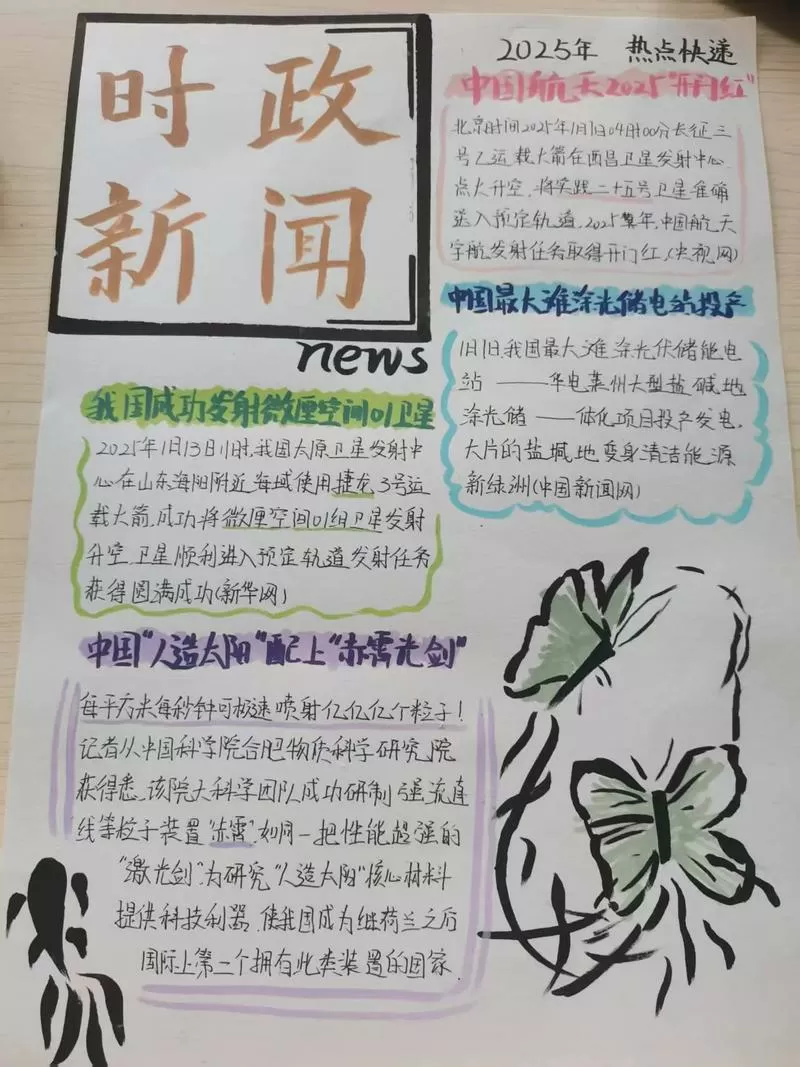 时政
新闻
news
2025年 热点快递
中国航天2025"开门红"
北京时间2025年1月1日04时00分长征三
号乙运载火箭在西昌卫星发射中心
点火升空，将实践二十五号卫星准确
送入预定轨道，2025年，中国航天
宇航发射任务取得开门红，(央视网)
中国最大滩涂光储电站投产
1日1日，我国最大滩涂光伏储能电
站——华电莱州大型盐碱地
涂光储——体化项目投产发电，
大片的盐碱地变身清洁能源
新绿洲(中国新闻网)
我国成功发射微厘空间01卫星
2025年1日13日11时，我国太原卫星发射中
心在山东海阳附近海域使用捷龙3号运
载火箭，成功将微厘空间01组卫星发射
升空，卫星顺利进入预定轨道发射任务
获得圆满成功(新华网)
中国"人造太阳"配上"赤霄光剑"
每平方米每秒钟可极速喷射亿亿亿个粒子！
记者从中国科学院合肥物质科学研究院
获得悉，该院大科学团队成功研制强流直
线等粒子装置"赤霄"，如同一把性能超强的
"激光剑"，为研究"人造太阳"核心材料
提供科技利器，使我国成为继荷兰之后
国际上第二个拥有此类装置的国家．